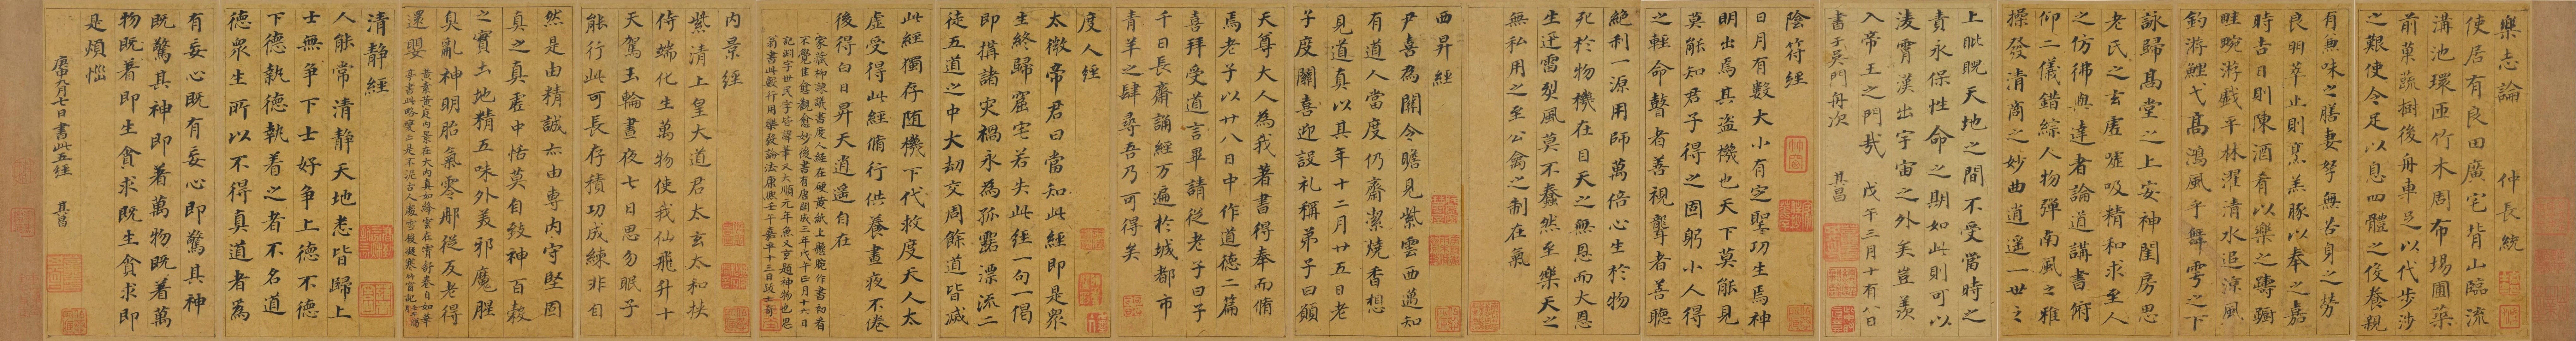 樂志論 仲長統
使居有良田廣宅背山臨流
溝池環匝竹木周布場圃築
前菓蔬樹後舟車足以代步涉
之艱使令足以息四體之役養親
有兼味之膳妻孥無苦身之勞
良朋萃止則烹羔豚以奉之嘉
時吉日則陳酒肴以樂之躊躕
畦畹游戲平林濯清水追涼風
釣游鯉弋高鴻風乎舞雩之下
詠歸高堂之上安神閨房思
老氏之玄虛噓吸精和求至人
之仿彿與達者論道講書俯
仰二儀錯綜人物彈南風之雅
操發清商之妙曲逍遙一世之
上睥睨天地之間不受當時之
責永保性命之期如此則可以
淩霄漢出宇宙之外矣豈羨
入帝王之門哉 戊午三月十有八日
書于吳門舟次 其昌
陰符經
日月有數大小有定聖功生焉神
明出焉其盜機也天下莫能見
莫能知君子得之固躬小人得
之輕命瞽者善視聾者善聽
絕利一源用師萬倍心生於物
死於物機在目天之無恩而大恩
生迅雷烈風莫不蠢然至樂天之
無私用之至公禽之制在氣
西昇經
尹喜為關令瞻見紫雲西邁知
有道人當度仍齋潔燒香想
見道真以其年十二月廿五日老
子度關喜迎設礼稱弟子曰願
天尊大人為我著書得奉而脩
焉老子以廿八日中作道德二篇
喜拜受道言畢請從老子曰子
千日長齋誦經万遍於城都市
青羊之肆尋吾乃可得矣
度人經
太微帝君曰當知此經即是眾
生終歸窟宅若失此經一句一偈
即搆諸灾禍永為孤露漂流二
徒五道之中大劫交周餘道皆滅
此經獨存随機下代救度天人太
虛受得此經脩行供養晝夜不倦
後得白日昇天逍遙自在
家藏柳諫議書度人經在硬黃紙上懸腕作書初看
不覺佳愈觀愈妙後書有唐開成三年戊午正月十六日
記洞字世民字皆
內景經
紫清上皇大道君太玄太和挾
侍端化生萬物使我仙飛升十
天駕玉輪晝夜七日思勿眠子
能行此可長存積功成練非自
然是由精誠亦由專內守堅固
真之真虛中恬莫自致神百穀
之實土地精五味外美邪魔腥
臭亂神明胎氣零那從反老得
還嬰
黃素黃庭內景在大內真如絳雲在霄舒卷自如
清靜經
人能常清靜天地悉皆歸上
士無爭下士好爭上德不德
下德執德執着之者不名道
德眾生所以不得真道者為
有妄心既有妄心即驚其神
既驚其神即著萬物既着萬
物既着即生貪求既生貪求即
是煩惱
庚申九月七日書此五經 其昌